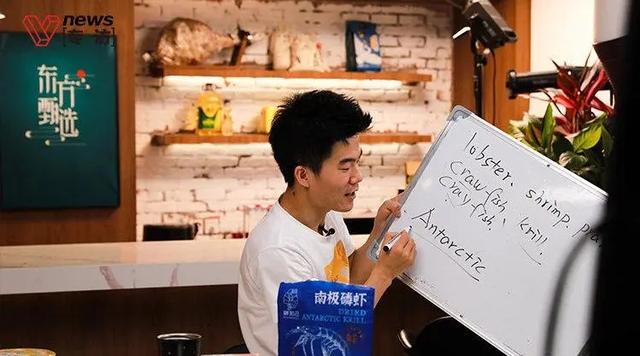 news
[专访]
东方
甄选
lobster、shrimp.
craw-fish、krill.
cray-fish、
Antarctic
南极磷虾
DRIED
ANTARCTIC KRILL